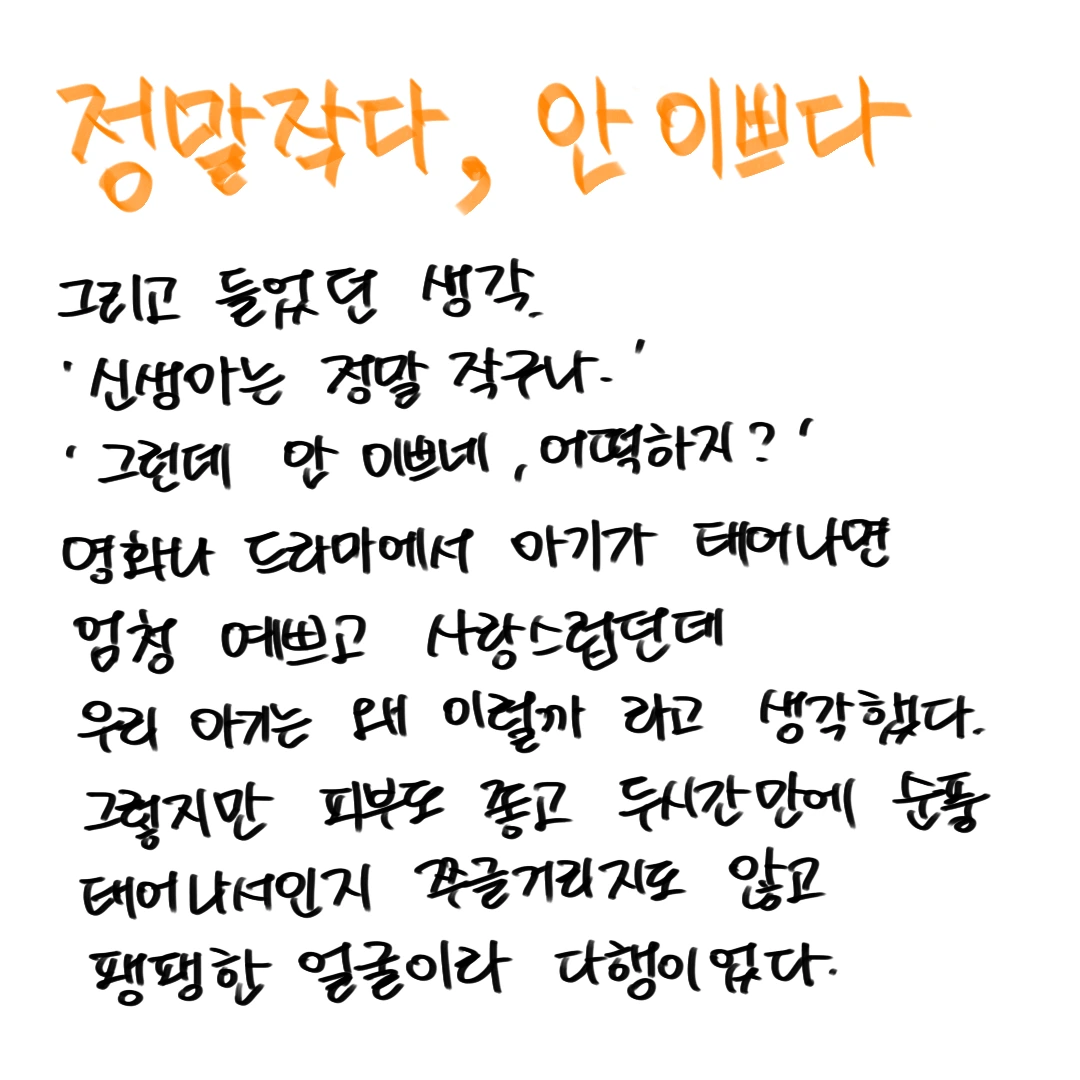 정말작다, 안 이쁘다
그리고 들었던 생각.
'신생아는 정말 작구나.'
'그런데 안 이쁘네, 어떡하지?'
영화나 드라마에서 아기가 태어나면
엄청 예쁘고 사랑스럽던데
우리 아기는 왜 이럴까 라고 생각했다.
그렇지만 피부도 좋고 두시간만에 순풍
태어나서인지 쭈글거리지도 않고
팽팽한 얼굴이라 다행이었다.